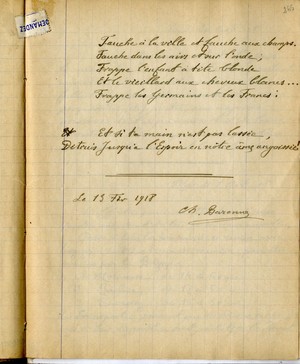 DEMANDEZ
Fauche à la ville et fauche aux champs.
Fauche dans les airs et sur l'onde,
Frappe l'enfant à tête blonde
Et le vieillard aux cheveux blancs...
Frappe les Germains et les Francs!
Et Et si ta main n'est pas lassée,
Détruis jusqu'à l'Espoir en nôtre âme angoissée!
Le 13 Fév 1918
Ch.